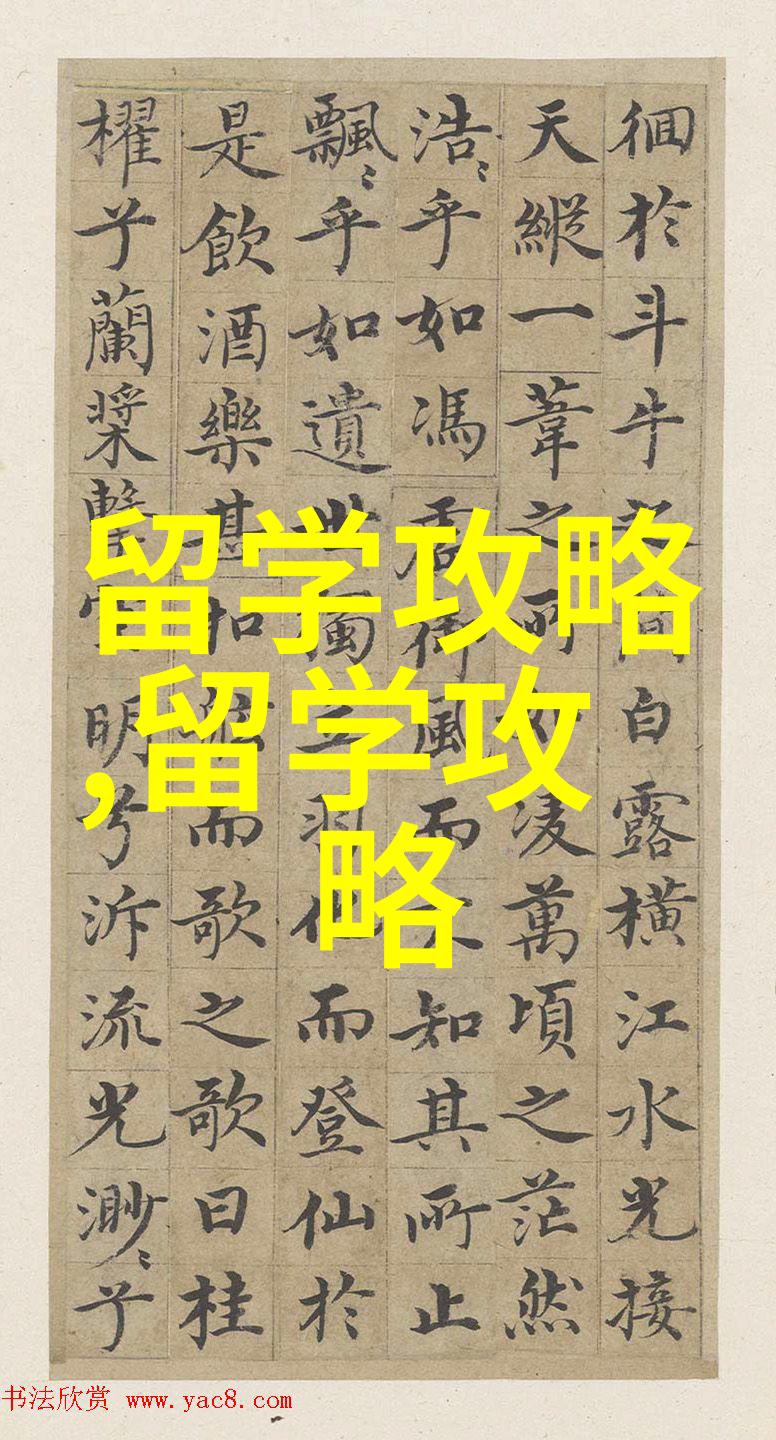 徊於斗牛之間白露橫江水光接
天縱一葦之所如凌萬頃之茫然
浩〻乎如馮虛御風而不知其所止
飄〻乎如遺世獨立羽化而登仙於
是飲酒樂甚扣舷而歌之歌曰桂
櫂兮蘭槳擊空明兮泝流光渺〻兮
留学攻略
,留学攻
略
书法欣赏 www.yac8.com